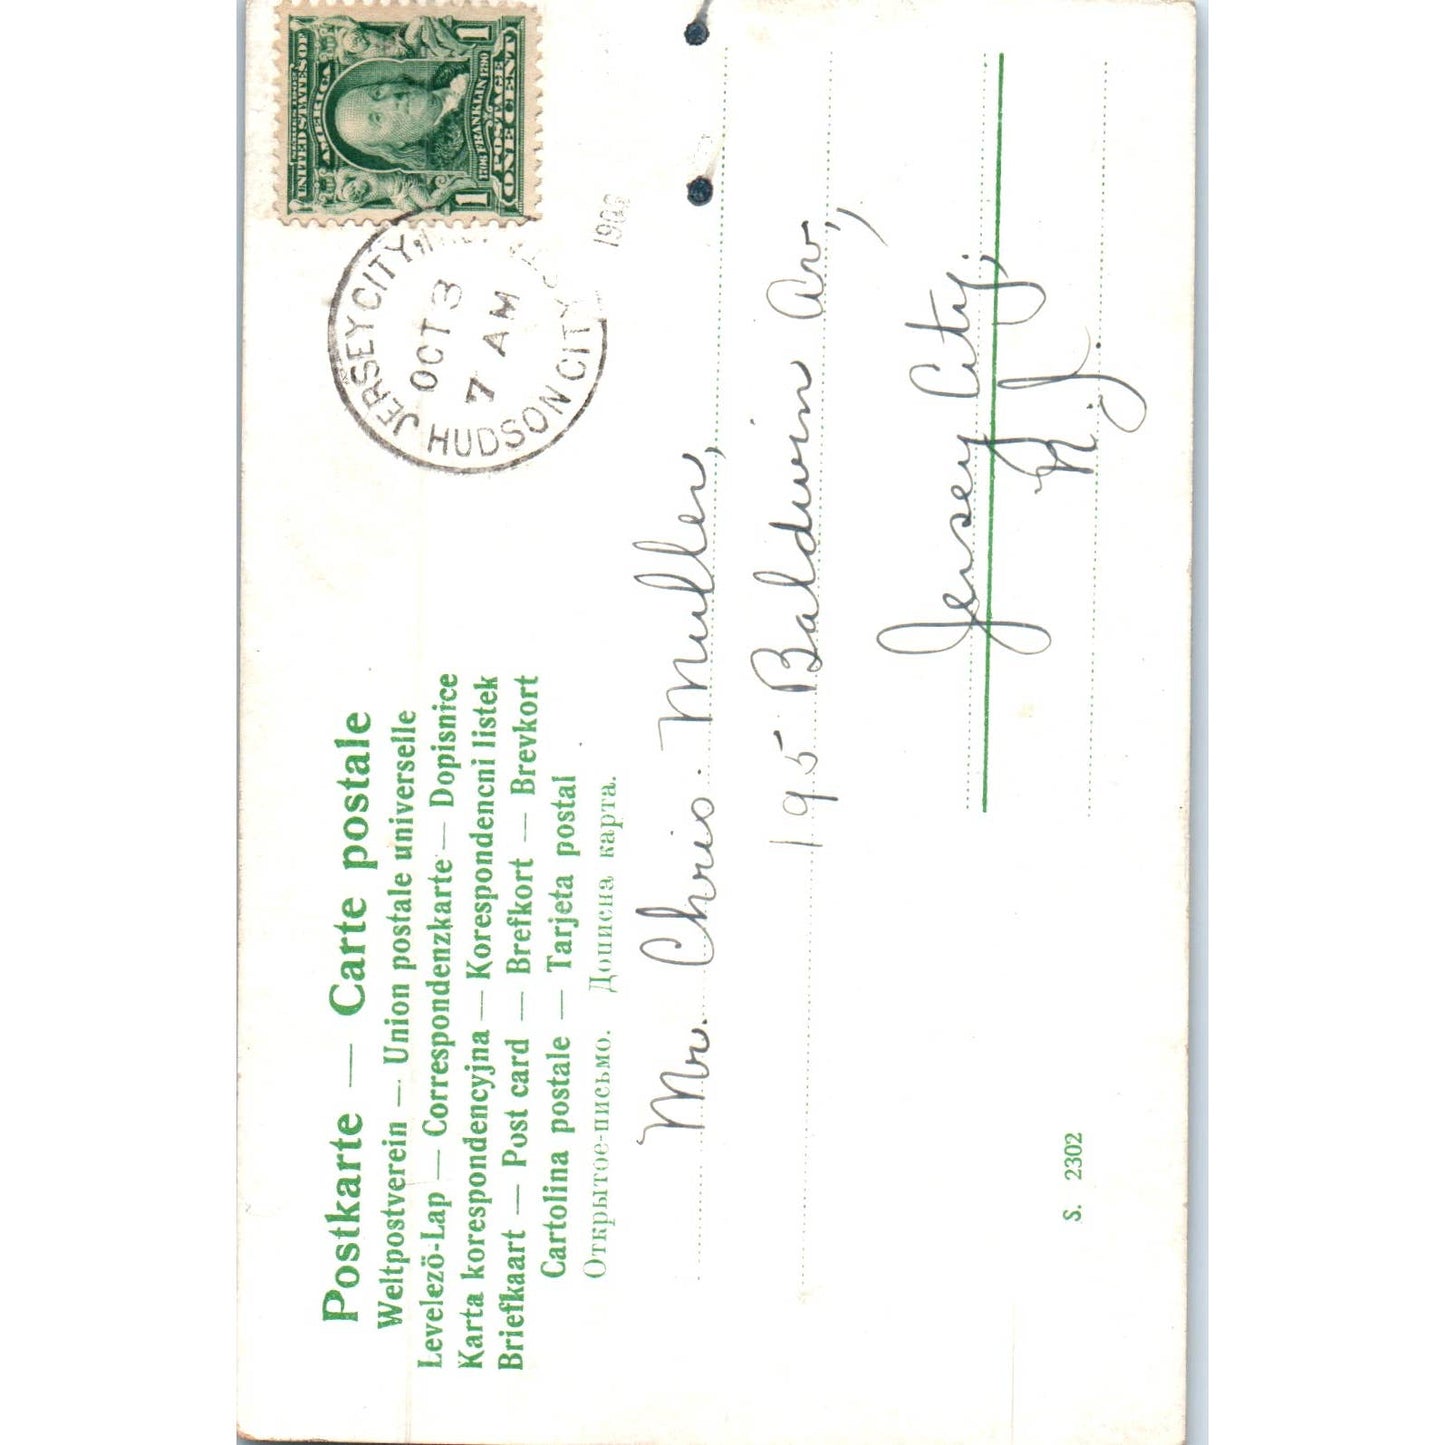 Postkarte — Carte postale
Weltpostverein — Union postale universelle
Levelezö-Lap — Correspondenzkarte — Dopisnice
Karta korespondencyjna — Korespondencni listek
Briefkaart — Post card — Brefkort — Brevkort
Cartolina postale — Tarjeta postal
Открытое-письмо. Дописна карта.
UNITED STATES OF
AMERICA
1706 FRANKLIN 1790
POSTAGE
1 ONE CENT 1
JERSEY CITY,
OCT 3
7 AM
HUDSON CITY
Mr. Chris. Muller,
195 Baldwin Av,,
Jersey City,
N.J.
S. 2302